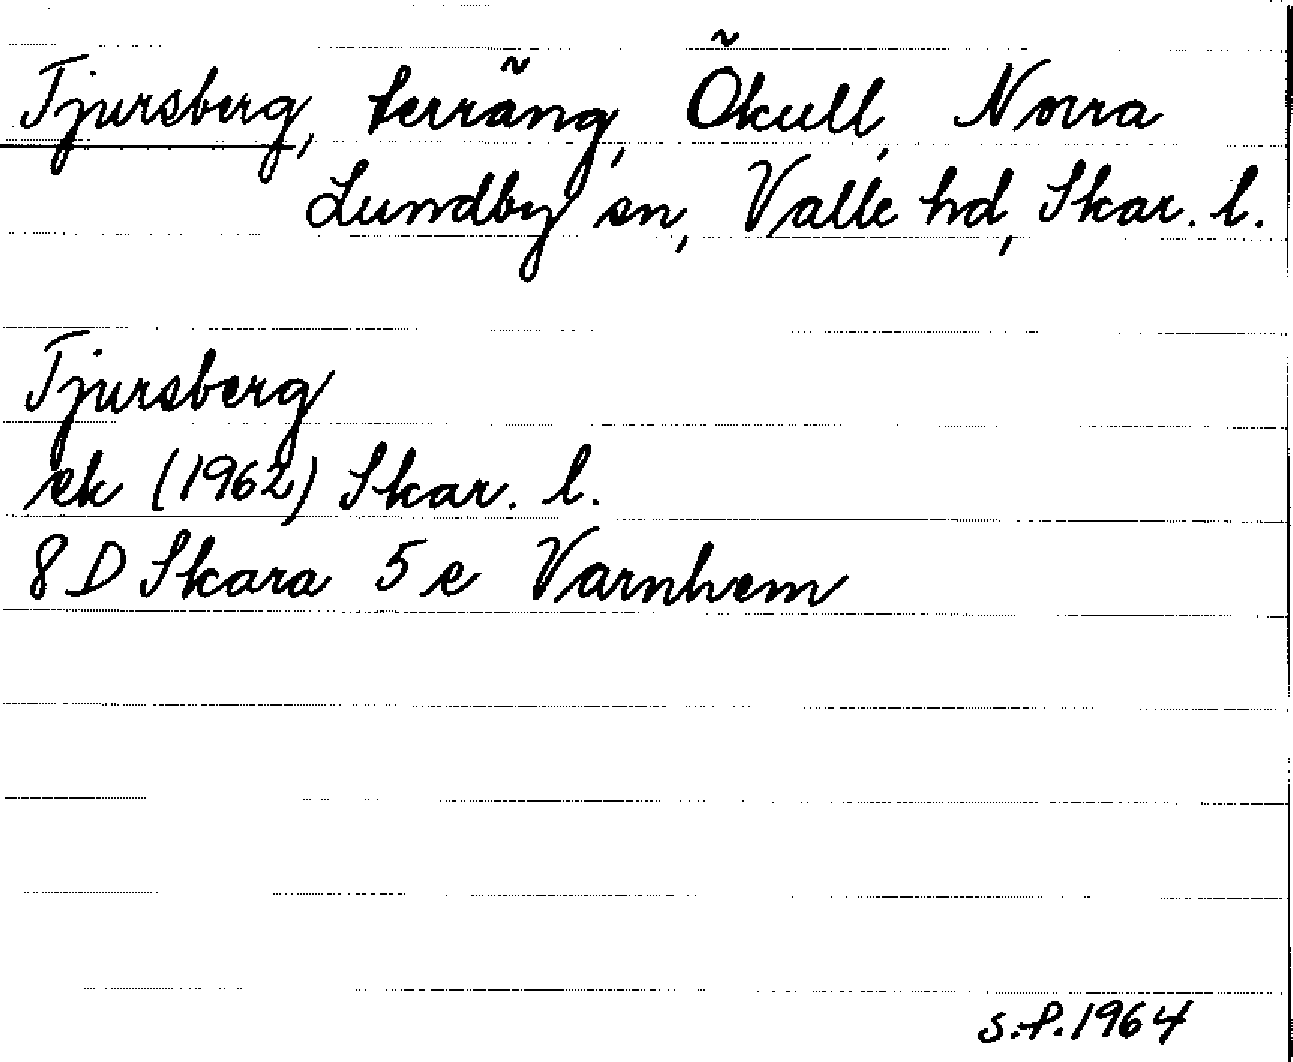 Tjursberg, terräng, Ökull, Norra
Lundby sn, Valle hd, Skar. l.
Tjursberg
ek (1962) Skar. l.
8 D Skara 5 e Varnhem
S.F. 1964